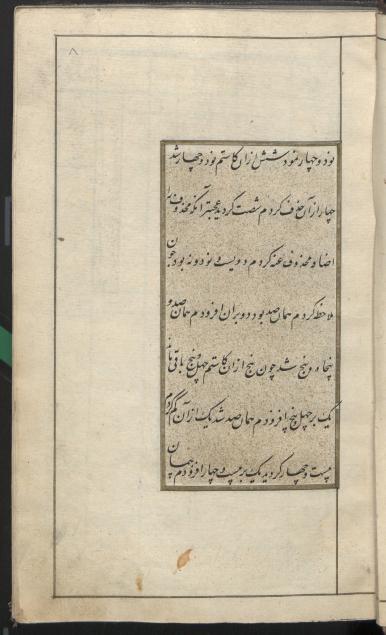 ۸
نود و چهار نمود شش ازان کاستم نود و چهار شد
چهار ازان حذف کردم شصت گردید عجبتر آنکه محذوف را
اضا و محذوف عنه کردم دویست و نود و نه بود چون
ملاحظه کردم همان صد بود دو بران افزودم همان صد و
پنجاه و پنج شد چون پنج ازان کاستم چهل و پنج باقی ماند
یک بر چهل پنج افزودم همان صد شد یک ازان کم کردم
بیست و چهار گردید یک بر بیست و چهار افزودم همان